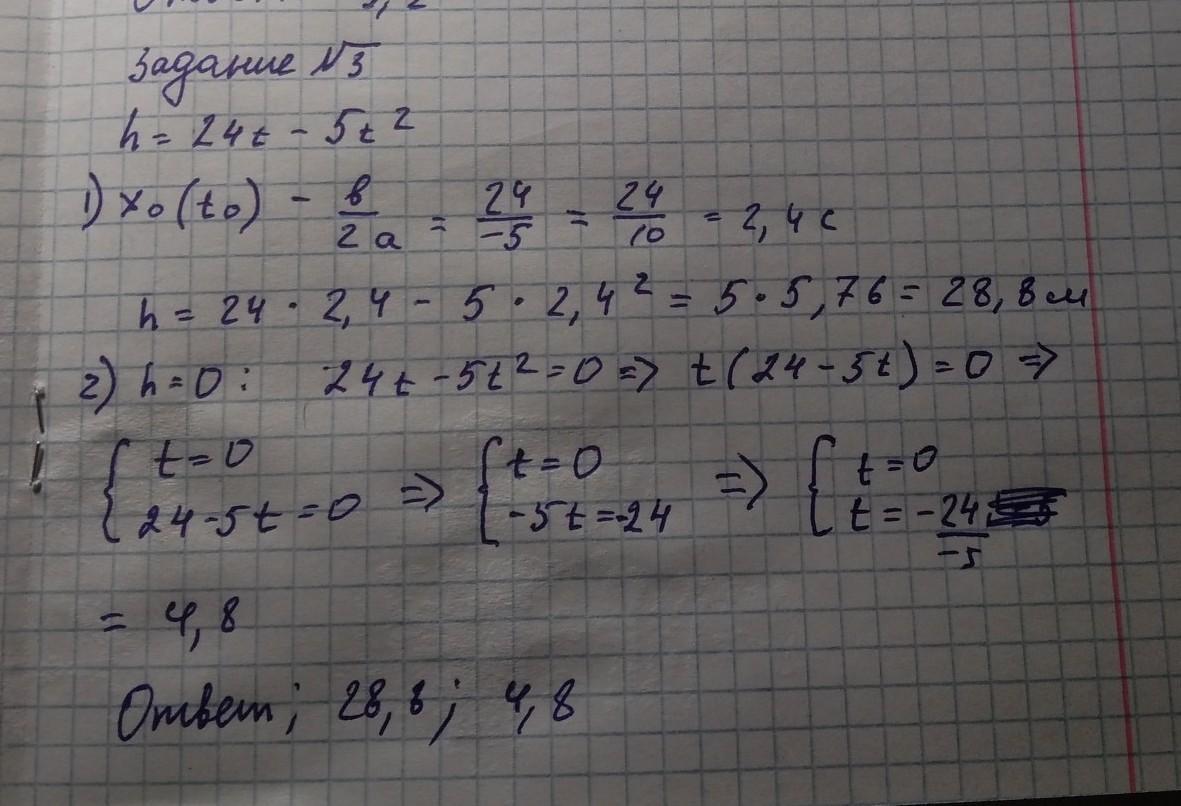 Задание №3
h = 24t - 5t²
1) x₀(t₀) - в/2a = 24/-5 = 24/10 = 2,4 с
h = 24 · 2,4 - 5 · 2,4² = 5 · 5,76 = 28,8 м
2) h = 0 : 24t - 5t² = 0 => t(24 - 5t) = 0 =>
{ t = 0 => { t = 0 => { t = 0
24 - 5t = 0 -5t = -24 t = -24/-5
= 4,8
Ответ; 28,8; 4,8